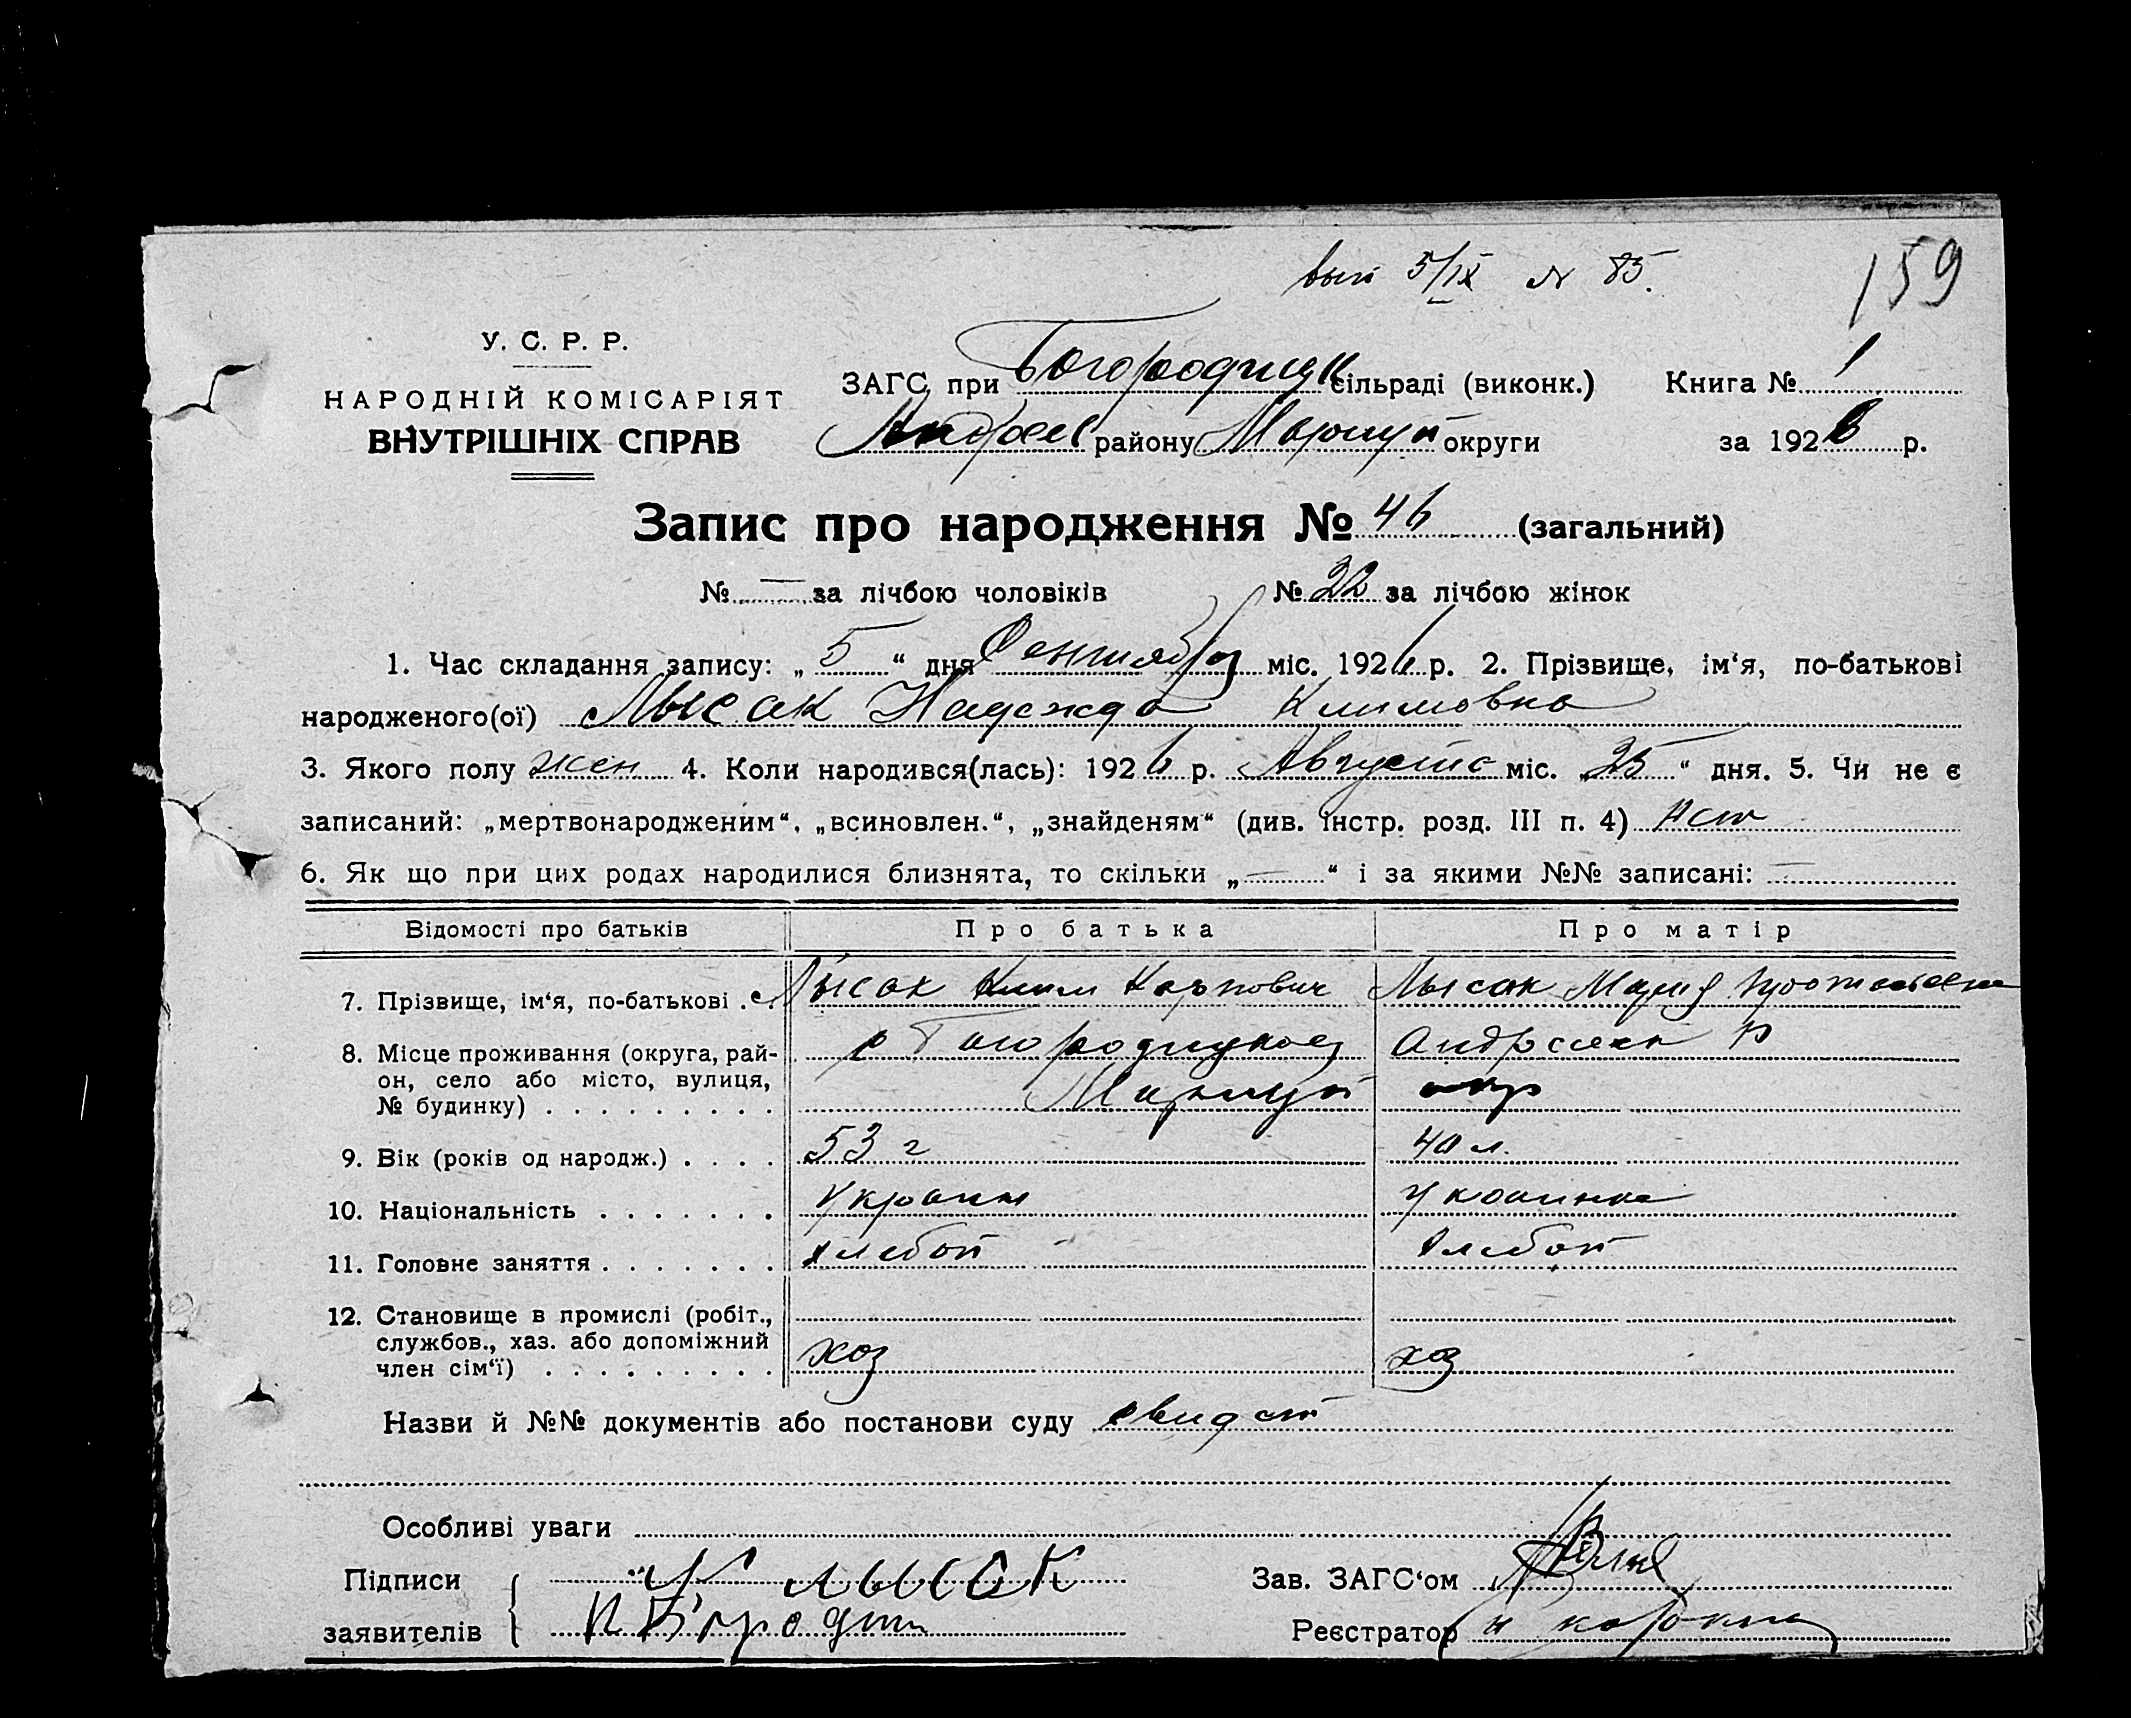 вып 5/IX № 85.
159
У. С. Р. Р.
НАРОДНІЙ КОМІСАРІЯТ
ВНУТРІШНІХ СПРАВ
ЗАГС при Богородицк сільраді (виконк.) Книга № 1
Андреев району Мариуп округи за 1926 р.
Запис про народження № 46 (загальний)
№ — за лічбою чоловіків № 22 за лічбою жінок
1. Час складання запису: „ 5 “ дня Сентября міс. 1926 р. 2. Прізвище, ім‘я, по-батькові
народженого(ої) Лысак Надежда Климовна
3. Якого полу жен 4. Коли народився(лась): 1926 р. Августа міс. „25“ дня. 5. Чи не є
записаний: „мертвонародженим“, „всиновлен.“, „знайденям“ (див. інстр. розд. III п. 4) Нет
6. Як що при цих родах народилися близнята, то скільки „—“ і за якими №№ записані: —
Відомості про батьків Про батька Про матір
7. Прізвище, ім‘я, по-батькові . . Лысак Клим Карпович Лысак Мария
8. Місце проживання (округа, рай-
он, село або місто, вулиця,
№ будинку) . . . . . . . . .
с Богородицкое Андреевск р
Мариуп окр
9. Вік (років од народж.) . . . . 53 г 40 л.
10. Національність . . . . . . . Украин Украинка
11. Головне заняття . . . . . . . хлебоп хлебоп
12. Становище в промислі (робіт.,
службов., хаз. або допоміжний
член сім‘ї) . . . . . . . . .
хоз хоз
Назви й №№ документів або постанови суду свидет
Особливі уваги
Підписи К лысак Зав. ЗАГС‘ом
заявителів Реєстратор